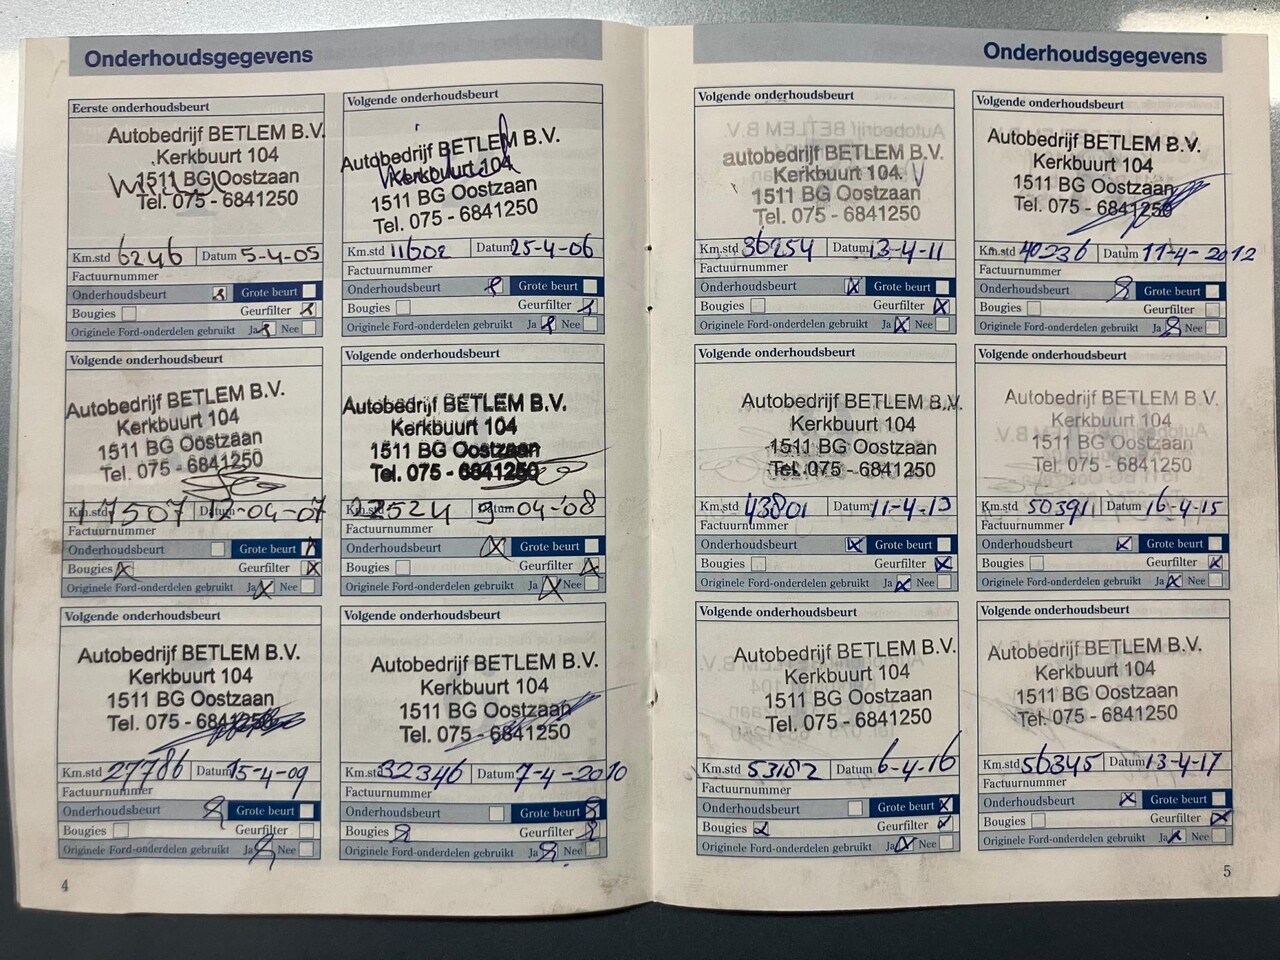 Onderhoudsgegevens
Eerste onderhoudsbeurt
Autobedrijf BETLEM B.V.
Kerkbuurt 104
1511 BG Oostzaan
Tel. 075 - 6841250
Km.std 6246 Datum 5-4-05
Factuurnummer
Onderhoudsbeurt Grote beurt
Bougies Geurfilter
Originele Ford-onderdelen gebruikt Ja Nee
Volgende onderhoudsbeurt
Autobedrijf BETLEM B.V.
Kerkbuurt 104
1511 BG Oostzaan
Tel. 075 - 6841250
Km.std 11602 Datum 25-4-06
Factuurnummer
Onderhoudsbeurt Grote beurt
Bougies Geurfilter
Originele Ford-onderdelen gebruikt Ja Nee
Volgende onderhoudsbeurt
Autobedrijf BETLEM B.V.
Kerkbuurt 104
1511 BG Oostzaan
Tel. 075 - 6841250
Km.std 17507 Datum 12-04-07
Factuurnummer
Onderhoudsbeurt Grote beurt
Bougies Geurfilter
Originele Ford-onderdelen gebruikt Ja Nee
Volgende onderhoudsbeurt
Autobedrijf BETLEM B.V.
Kerkbuurt 104
1511 BG Oostzaan
Tel. 075 - 6841250
Km.std 22524 Datum 9-04-'08
Factuurnummer
Onderhoudsbeurt Grote beurt
Bougies Geurfilter
Originele Ford-onderdelen gebruikt Ja Nee
Volgende onderhoudsbeurt
Autobedrijf BETLEM B.V.
Kerkbuurt 104
1511 BG Oostzaan
Tel. 075 - 6841250
Km.std 27786 Datum 15-4-09
Factuurnummer
Onderhoudsbeurt Grote beurt
Bougies Geurfilter
Originele Ford-onderdelen gebruikt Ja Nee
Volgende onderhoudsbeurt
Autobedrijf BETLEM B.V.
Kerkbuurt 104
1511 BG Oostzaan
Tel. 075 - 6841250
Km.std 32346 Datum 7-4-2010
Factuurnummer
Onderhoudsbeurt Grote beurt
Bougies Geurfilter
Originele Ford-onderdelen gebruikt Ja Nee
4
Onderhoudsgegevens
Volgende onderhoudsbeurt
autobedrijf BETLEM B.V.
Kerkbuurt 104
1511 BG Oostzaan
Tel. 075 - 6841250
Km.std 36254 Datum 13-4-11
Factuurnummer
Onderhoudsbeurt Grote beurt
Bougies Geurfilter
Originele Ford-onderdelen gebruikt Ja Nee
Volgende onderhoudsbeurt
Autobedrijf BETLEM B.V.
Kerkbuurt 104
1511 BG Oostzaan
Tel. 075 - 6841250
Km.std 40236 Datum 11-4-2012
Factuurnummer
Onderhoudsbeurt Grote beurt
Bougies Geurfilter
Originele Ford-onderdelen gebruikt Ja Nee
Volgende onderhoudsbeurt
Autobedrijf BETLEM B.V.
Kerkbuurt 104
1511 BG Oostzaan
Tel. 075 - 6841250
Km.std 43801 Datum 11-4-13
Factuurnummer
Onderhoudsbeurt Grote beurt
Bougies Geurfilter
Originele Ford-onderdelen gebruikt Ja Nee
Volgende onderhoudsbeurt
Autobedrijf BETLEM B.V.
Kerkbuurt 104
1511 BG Oostzaan
Tel. 075 - 6841250
Km.std 50391 Datum 16-4-15
Factuurnummer
Onderhoudsbeurt Grote beurt
Bougies Geurfilter
Originele Ford-onderdelen gebruikt Ja Nee
Volgende onderhoudsbeurt
Autobedrijf BETLEM B.V.
Kerkbuurt 104
1511 BG Oostzaan
Tel. 075 - 6841250
Km.std Datum 6-4-16
Factuurnummer
Onderhoudsbeurt Grote beurt
Bougies Geurfilter
Originele Ford-onderdelen gebruikt Ja Nee
Volgende onderhoudsbeurt
Autobedrijf BETLEM B.V.
Kerkbuurt 104
1511 BG Oostzaan
Tel. 075 - 6841250
Km.std 56345 Datum 13-4-17
Factuurnummer
Onderhoudsbeurt Grote beurt
Bougies Geurfilter
Originele Ford-onderdelen gebruikt Ja Nee
5